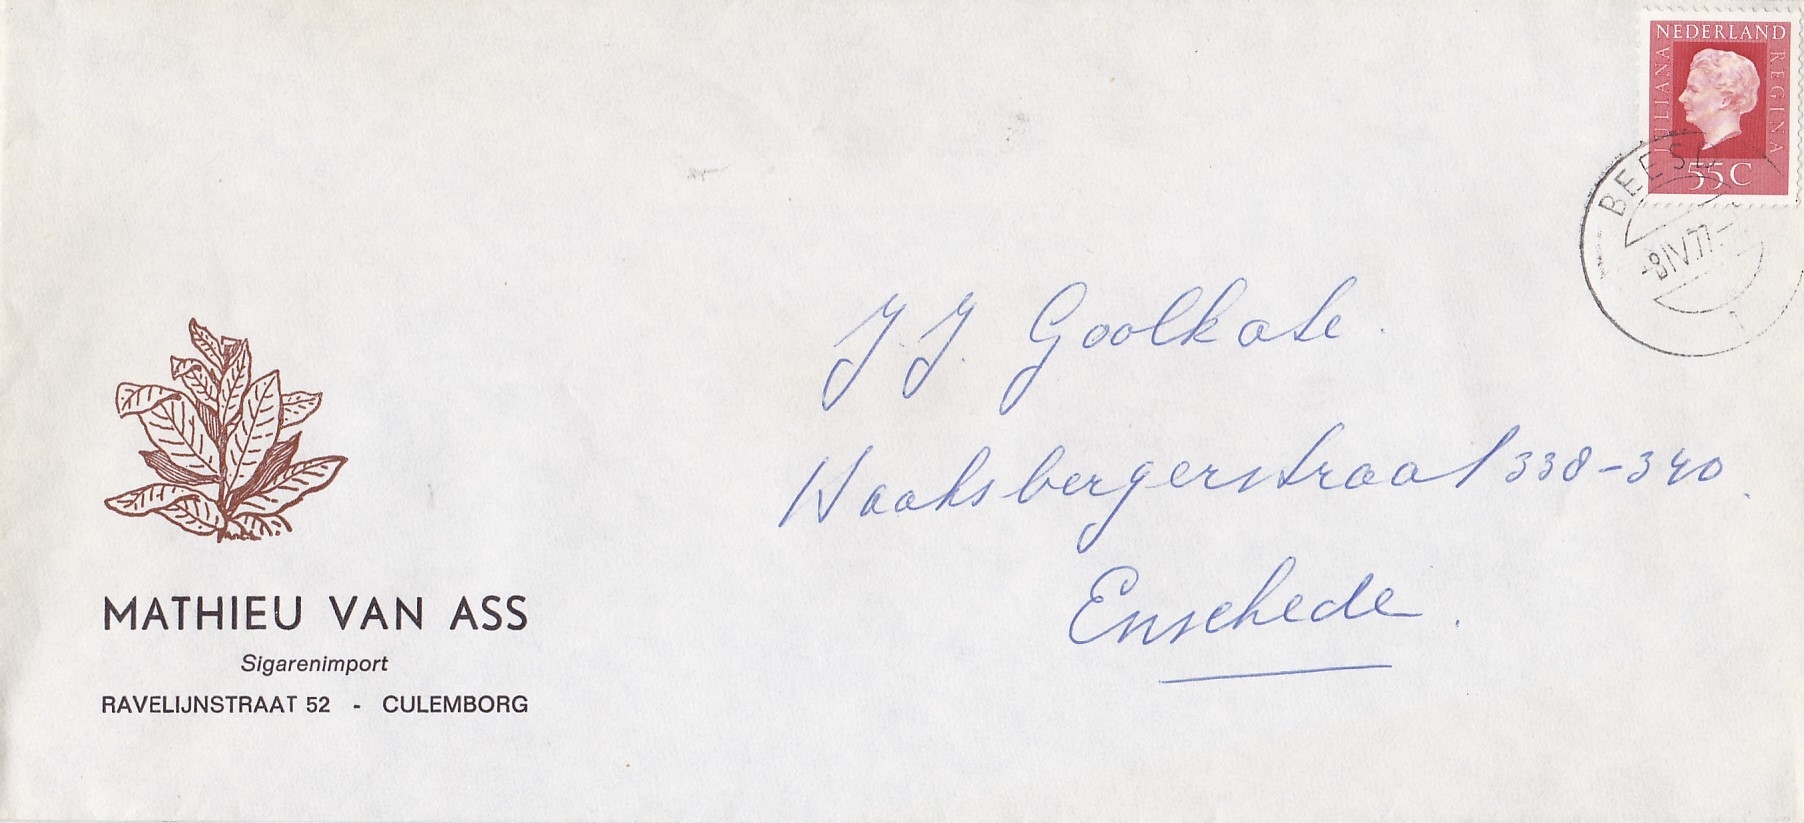 NEDERLAND
JULIANA REGINA
55 C
BEESD
-8.IV.77-
J.J. Goolkate.
Haaksbergerstraat 338-340.
Enschede.
MATHIEU VAN ASS
Sigarenimport
RAVELIJNSTRAAT 52 - CULEMBORG